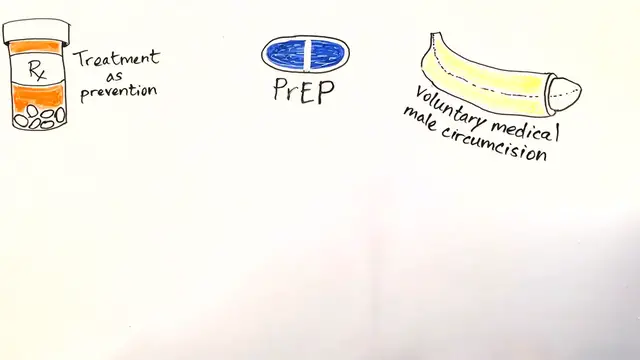 Rx
Treatment
as
prevention
PrEP
voluntary medical
male circumcision